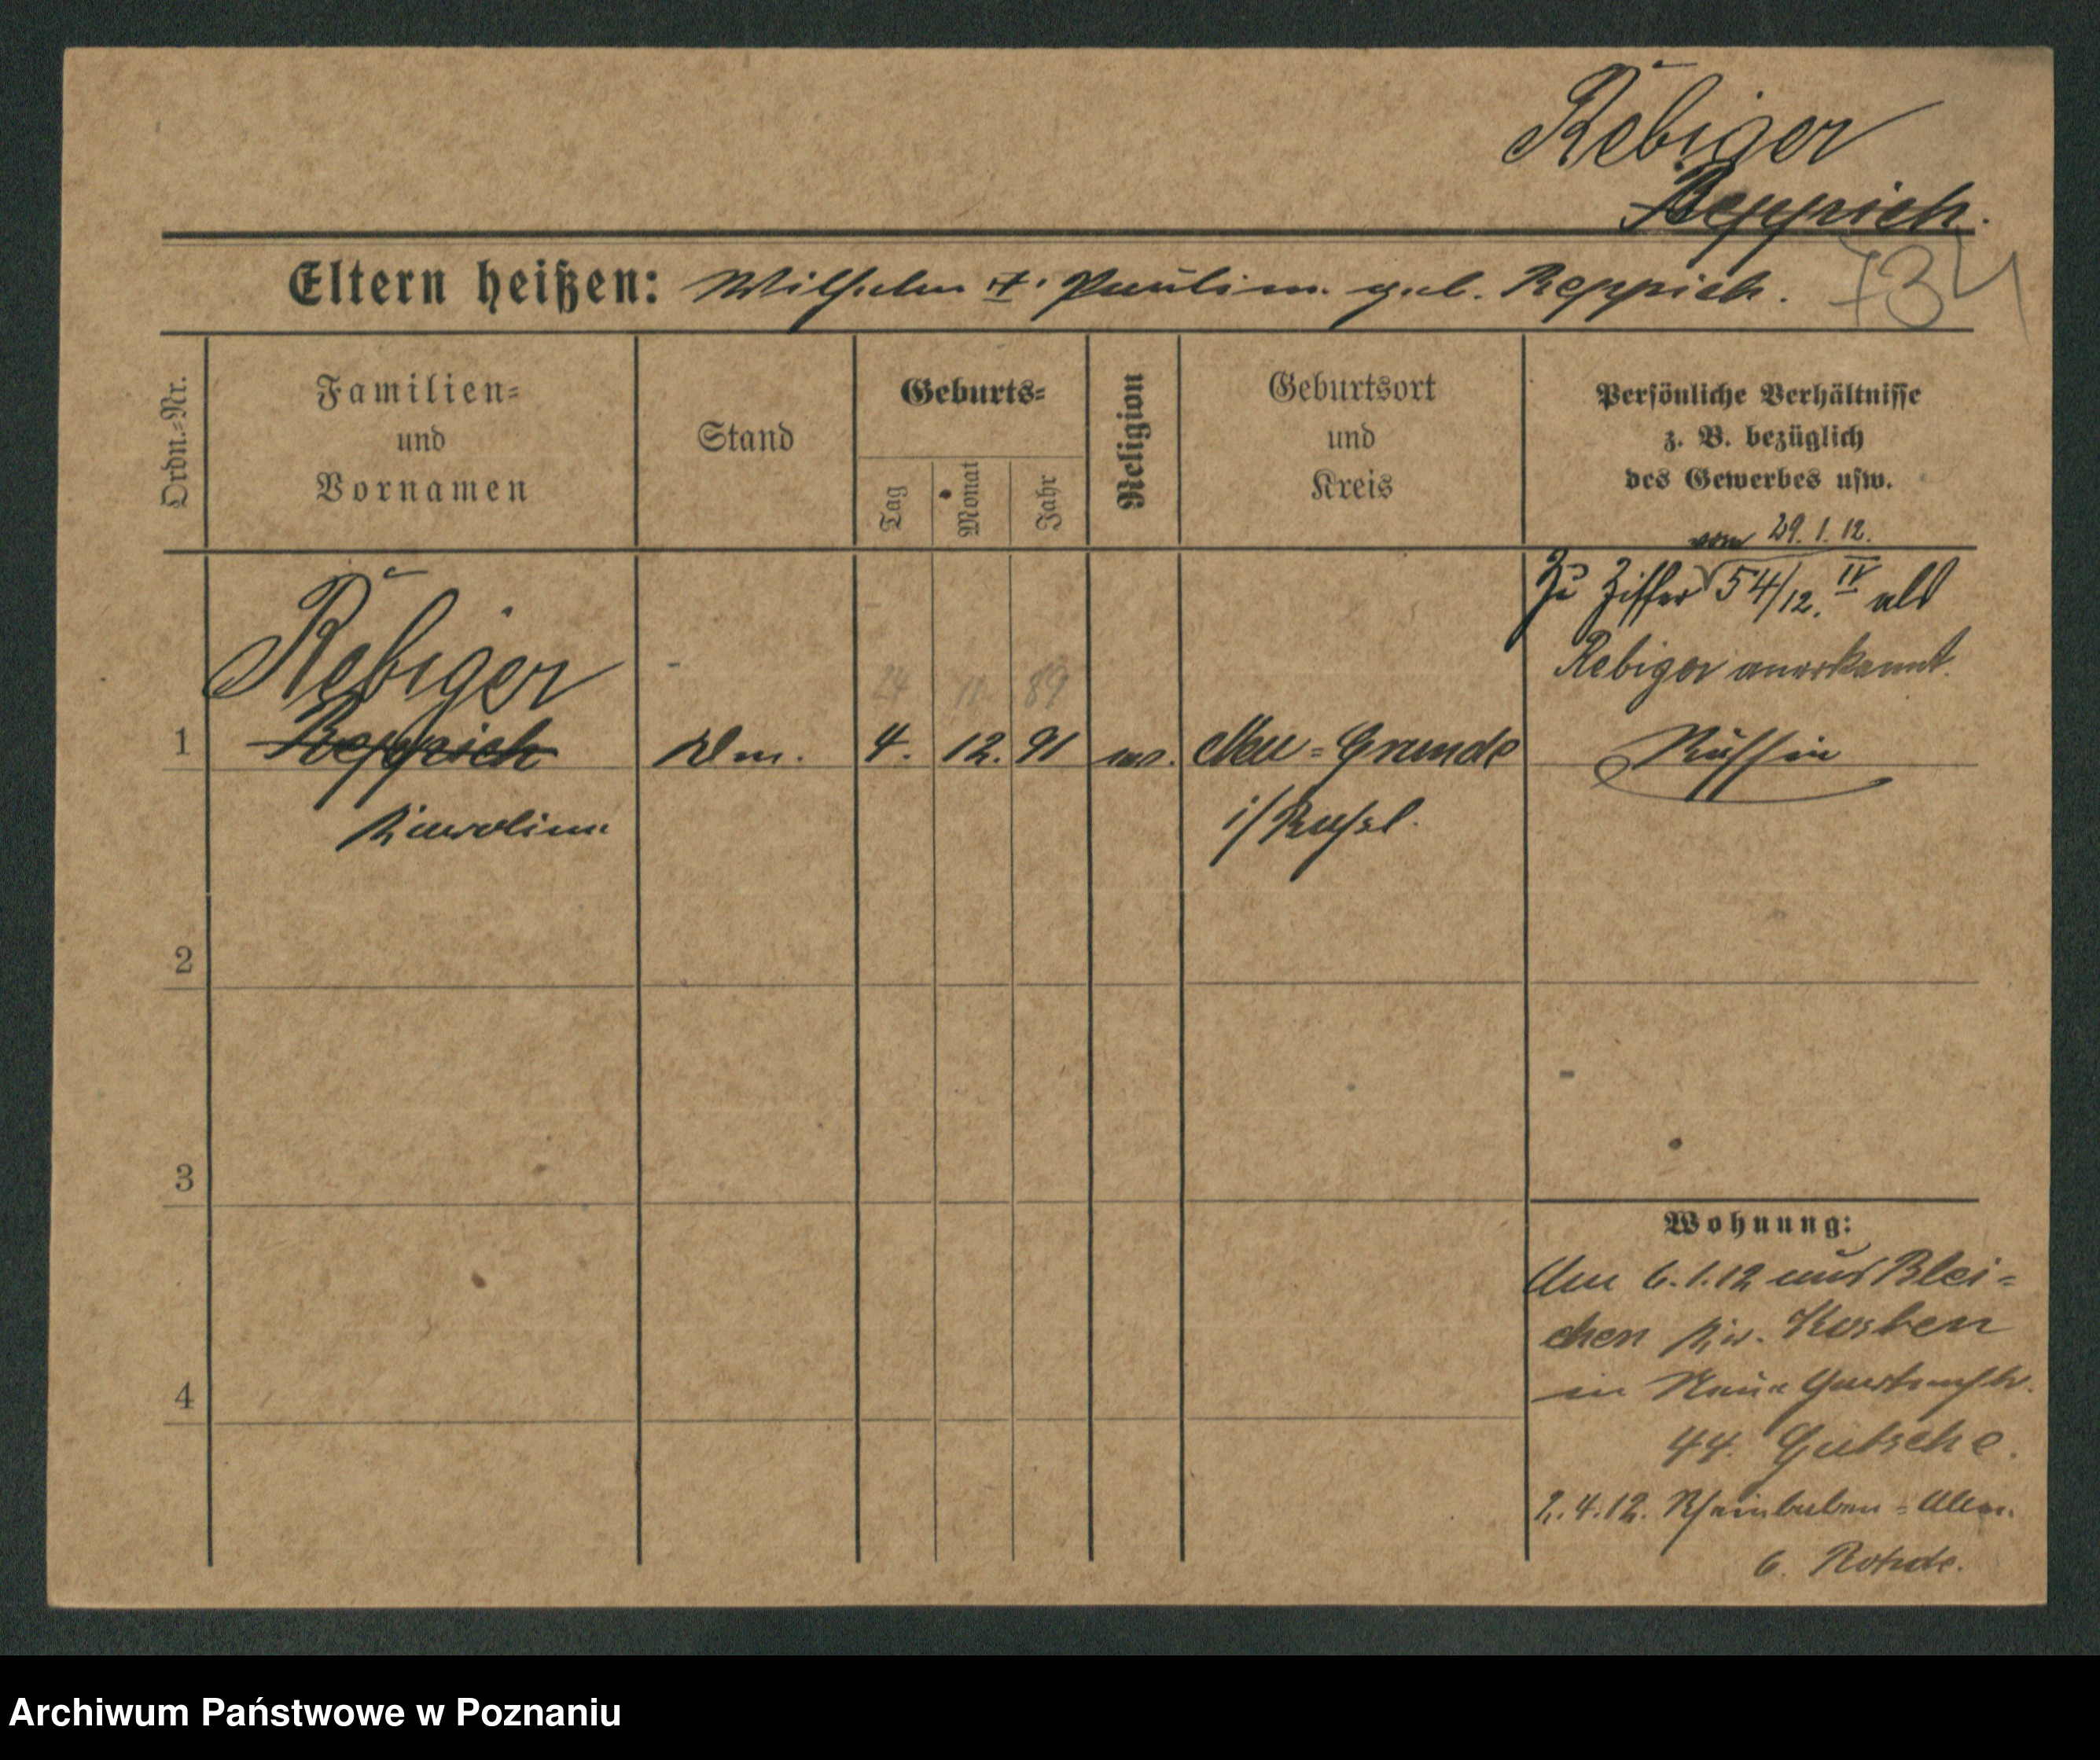 Rebiger
Reppich.
Eltern heißen: Wilhelm u. Pauline geb. Reppich.
734
Ordn.-Nr.
Familien-
und
Vornamen
Stand
Geburts-
Tag
Monat
Jahr
Religion
Geburtsort
und
Kreis
Persönliche Verhältnisse
z. B. bezüglich
des Gewerbes usw.
vom 29. 1. 12.
Zu Ziffer 54/12. IV als
Rebiger anerkannt.
Rebiger
24 11. 89
1 Reppich 4. 12. 91 Neu-Grunde
i/Russl.
2
3
4
Wohnung:
6.1.12 aus Blei-
chen Kr.
in Neue Gartenstr.
44. Gutsche.
2.4.12.
6. Rohde.
Archiwum Państwowe w Poznaniu